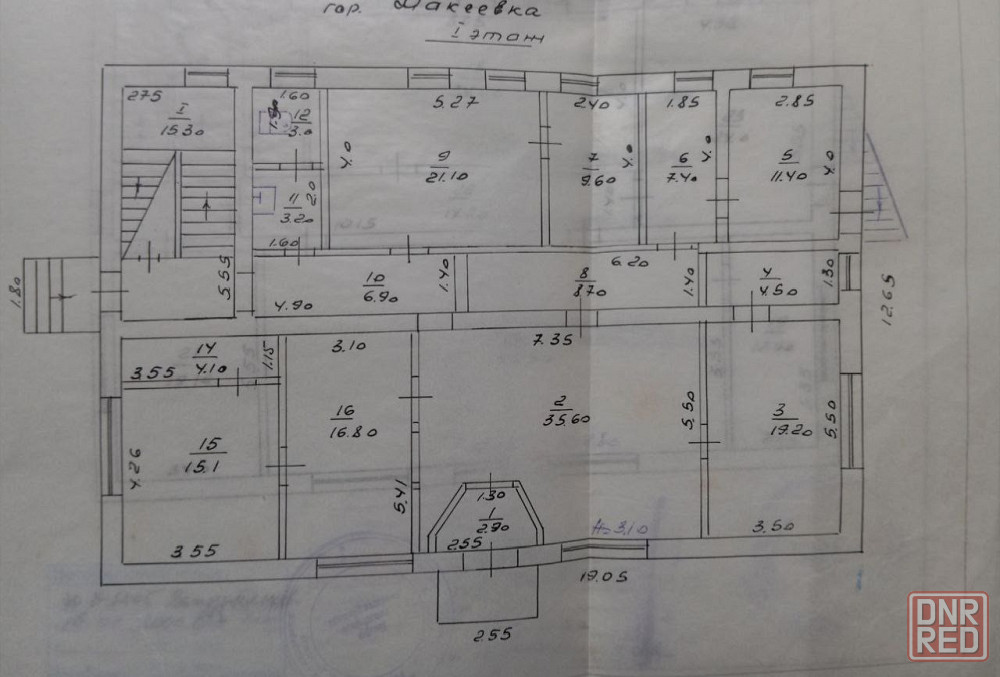 гор. Макеевка
I этаж
275
I
15.30
1.60
12
3.0
5.27
2.40
1.85
2.85
4.0
9
21.10
7
9.60
4.0
6
7.40
4.0
5
11.40
4.0
11
3.20
2.0
1.60
1.80
5.55
4.90
10
6.90
1.40
8
8.70
6.20
1.40
4
4.50
1.30
12.65
14
4.10
3.55
1.15
3.10
7.35
16
16.80
2
35.60
5.50
3
19.20
5.50
15
15.1
4.26
3.55
5.41
1.30
1
2.90
2.55
H=3.10
3.50
19.05
2.55
DNR
RED